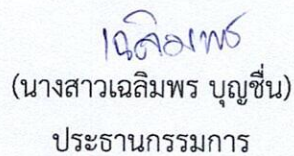 เฉลิมพร
(นางสาวเฉลิมพร บุญชื่น)
ประธานกรรมการ